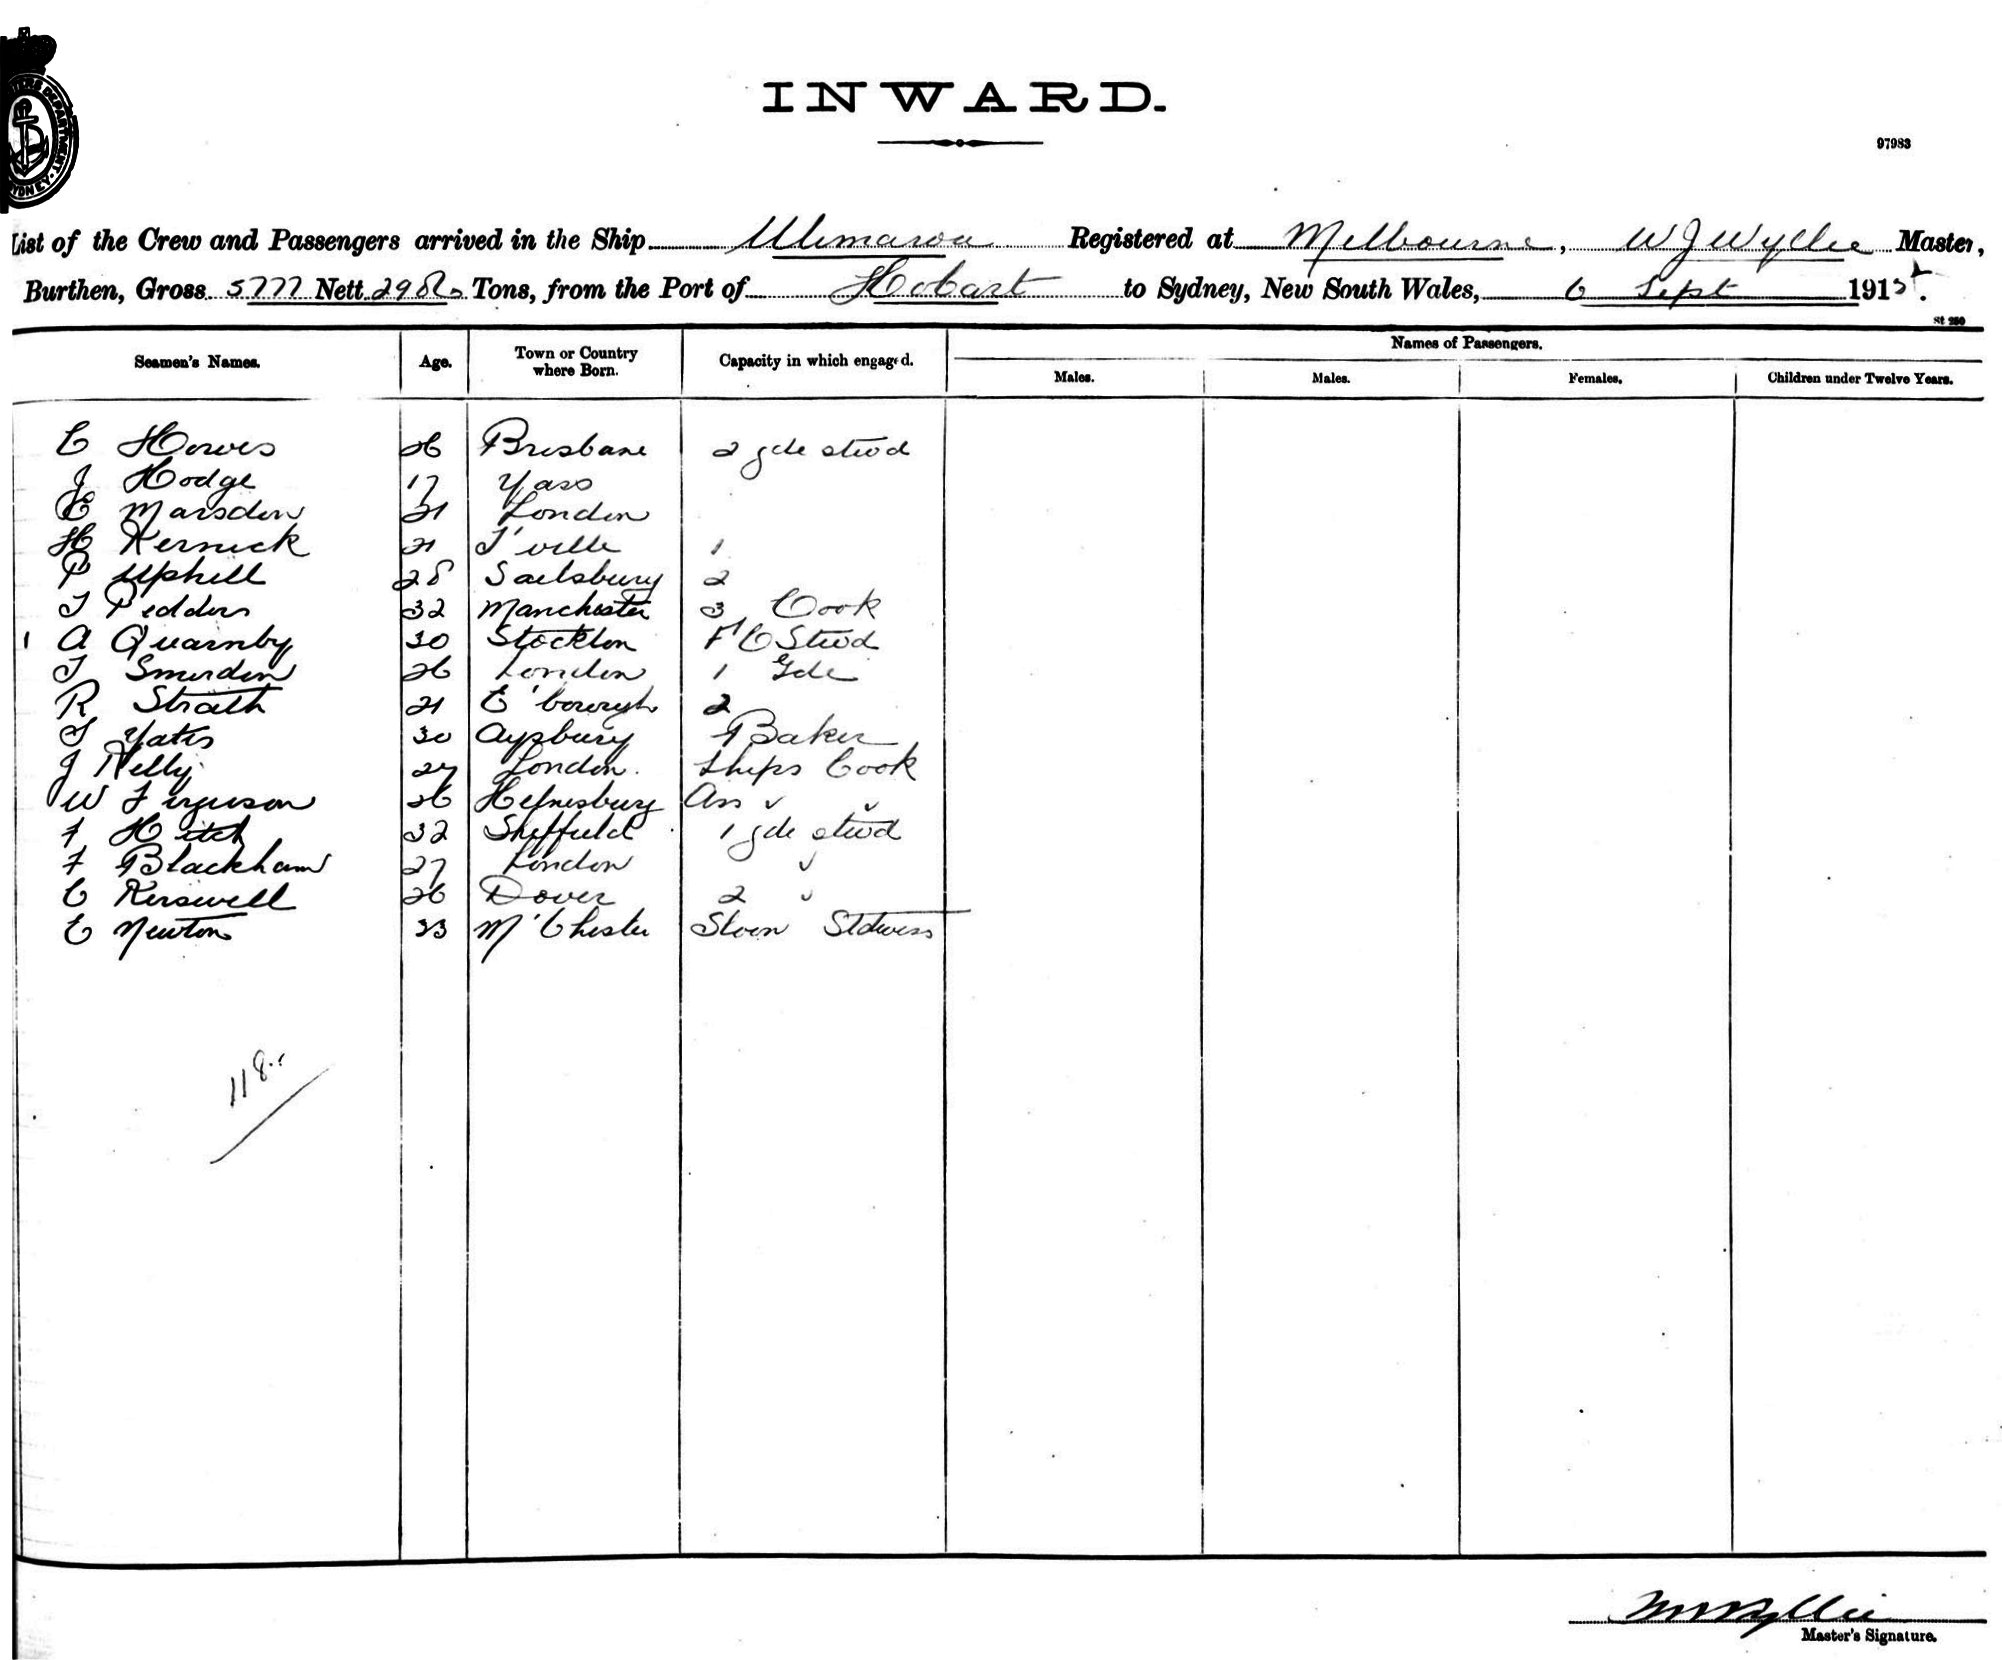 INWARD.
97983
List of the Crew and Passengers arrived in the Ship Ulimaroa Registered at Melbourne, W J Wyllie Master,
Burthen, Gross 5777 Nett Tons, from the Port of Hobart to Sydney, New South Wales, 6 Sept 191
St 250
Seamen's Names. Age. Town or Country where Born. Capacity in which engaged. Names of Passengers.
Males. Males. Females. Children under Twelve Years.
C Howes 26 Brisbane 2 gde stwd
J Hodge 17 Yass
E Marsden 21 London
H Kernick 21 T'ville 1
P Uphill 28 Sailsbury 2
T Pedders 32 Manchester 3 Cook
1 A Quarnby 30 Stockton F C Stwd
T Smerdon 26 London 1 Gde
R Strath 21 E'borough 2
Yates 30 Aysbury Baker
J Kelly 27 London. Ships Cook
W Ferguson 26 Ass
F Hitch 32 Sheffield 1 gde stwd
F Blackham 27 London
C Kerswell 26 Dover 2
E Newton 33 M'Chester Stdwess
118
Master's Signature.